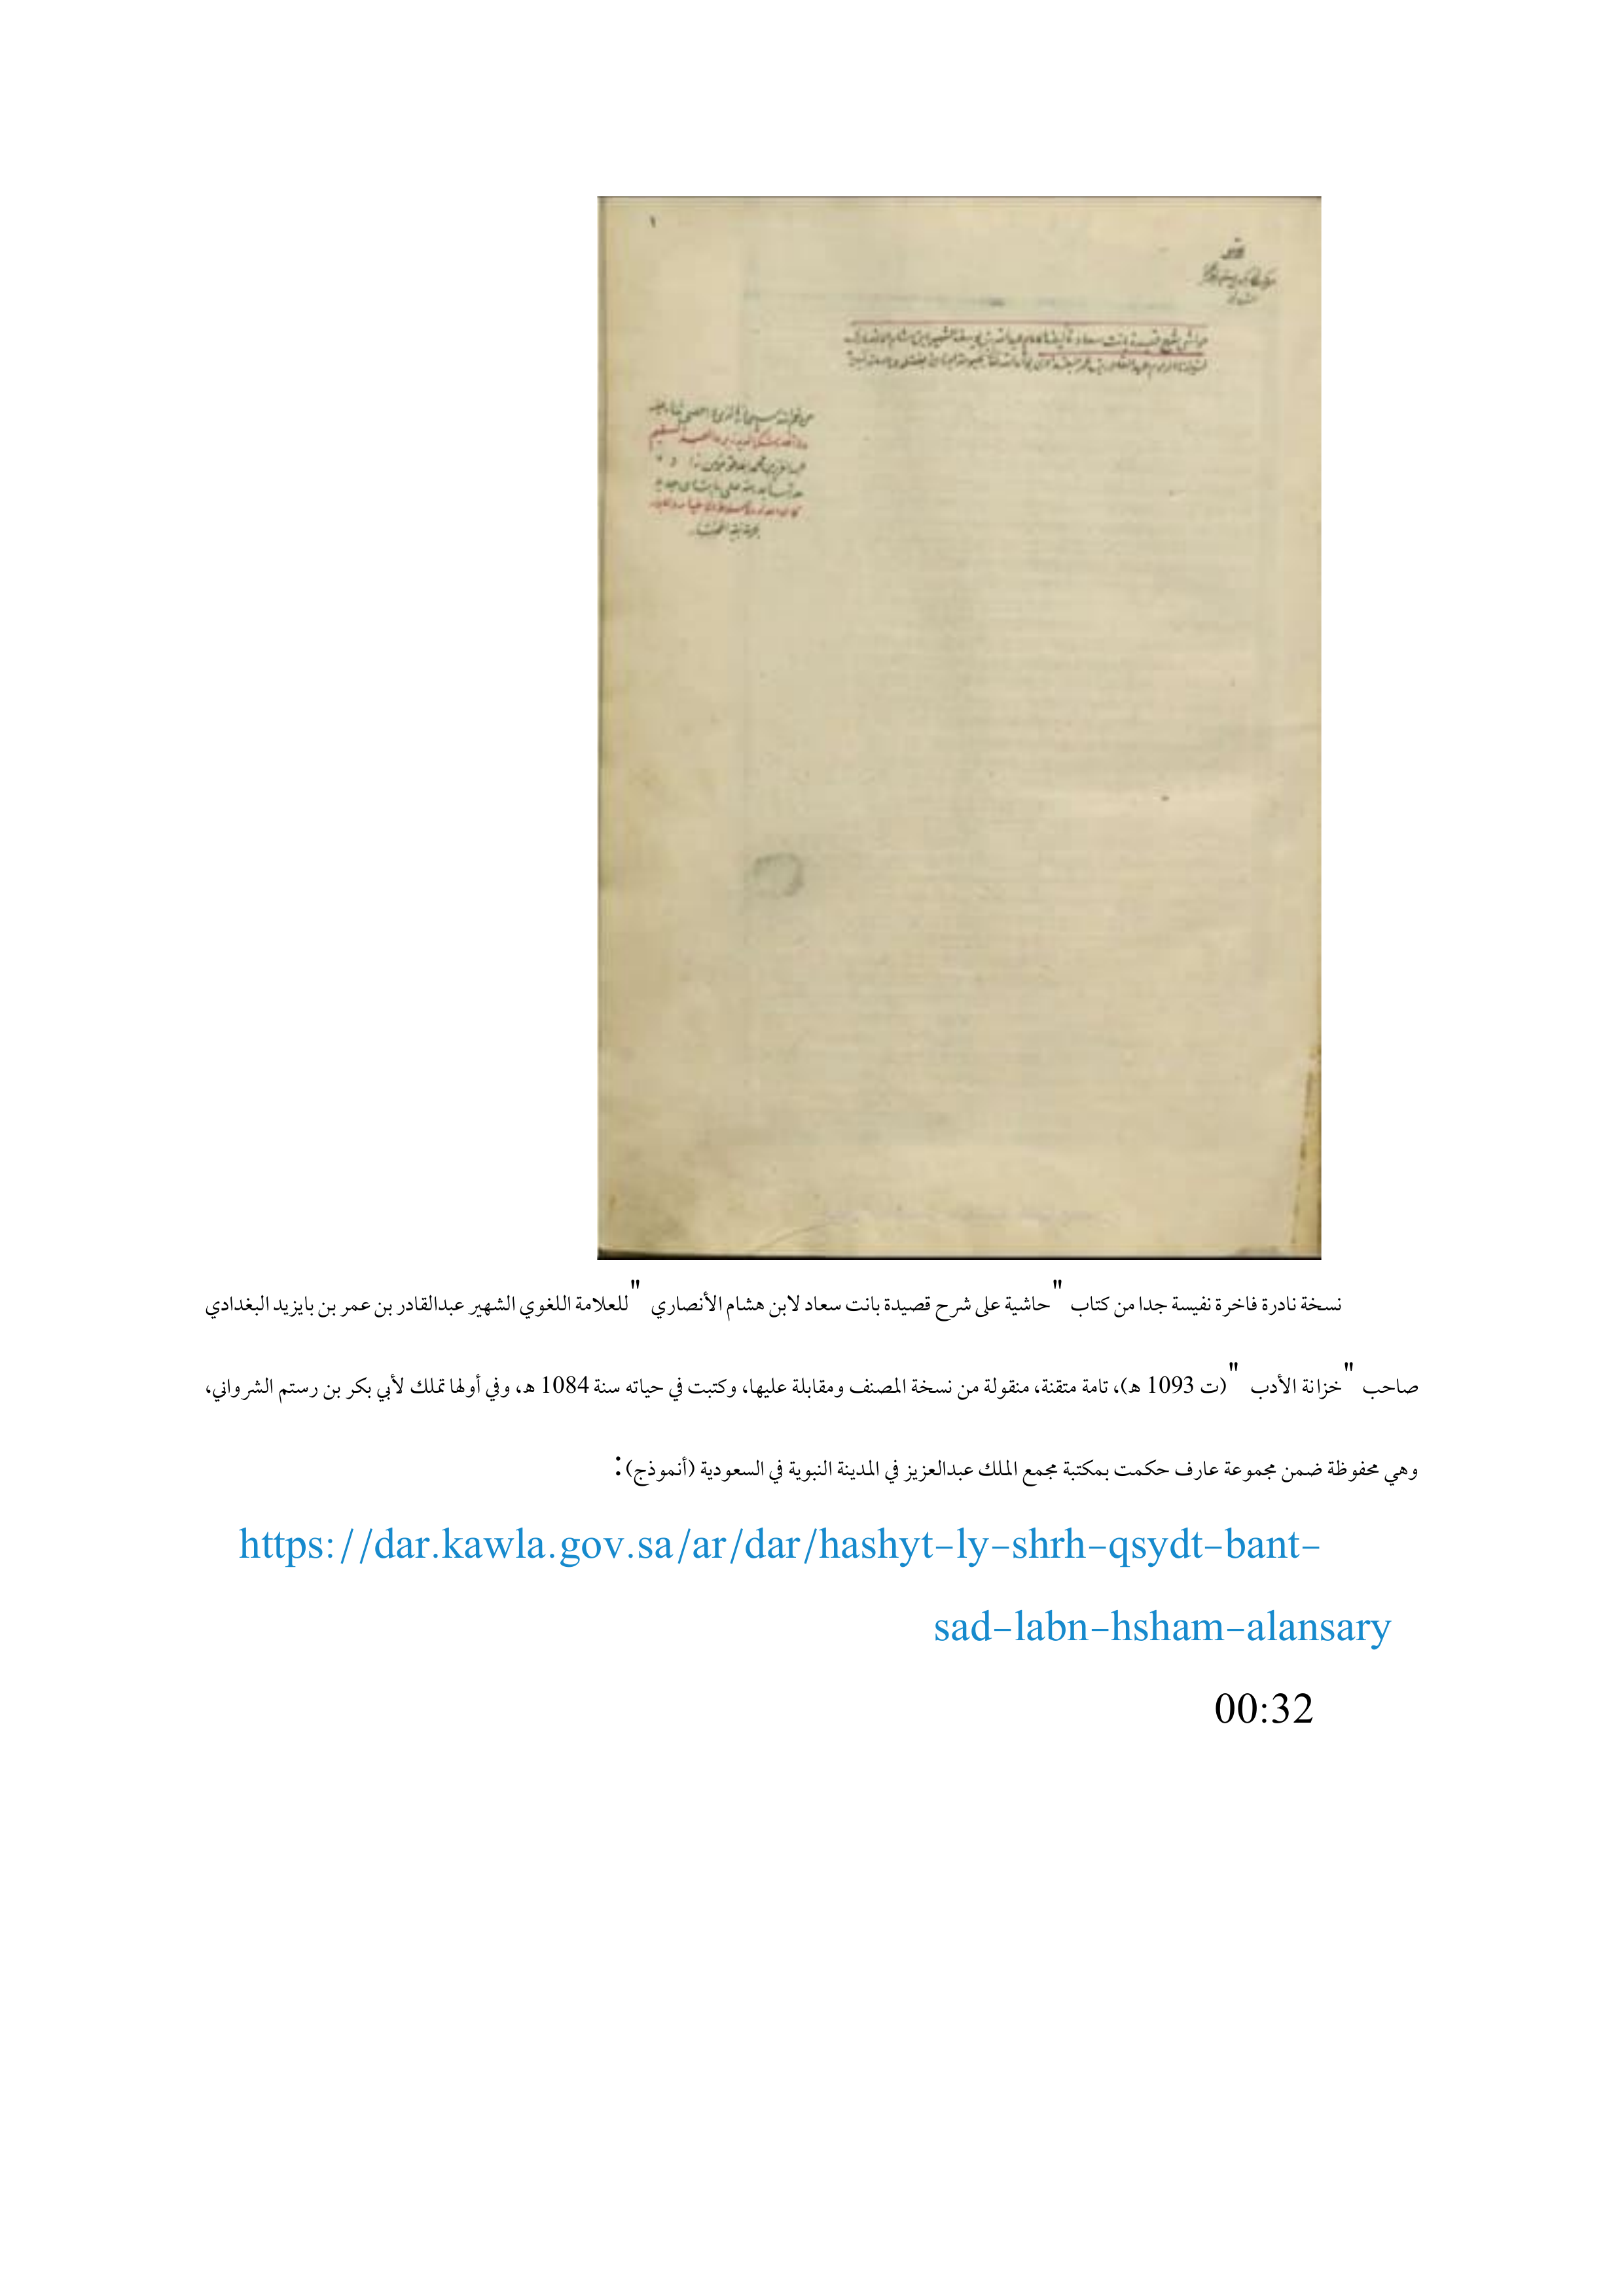 ١
حواشي شرح قصيدة بانت سعاد تأليف الامام عبدالله بن يوسف الشهير بابن هشام الانصاري
نسخة نادرة فاخرة نفيسة جدا من كتاب "حاشية على شرح قصيدة بانت سعاد لابن هشام الأنصاري " للعلامة اللغوي الشهير عبدالقادر بن عمر بن بايزيد البغدادي
صاحب "خزانة الأدب " (ت 1093 هـ)، تامة متقنة، منقولة من نسخة المصنف ومقابلة عليها، وكتبت في حياته سنة 1084 هـ، وفي أولها تملك لأبي بكر بن رستم الشرواني،
وهي محفوظة ضمن مجموعة عارف حكمت بمكتبة مجمع الملك عبدالعزيز في المدينة النبوية في السعودية (أنموذج):
https://dar.kawla.gov.sa/ar/dar/hashyt-ly-shrh-qsydt-bant-
sad-labn-hsham-alansary
00:32